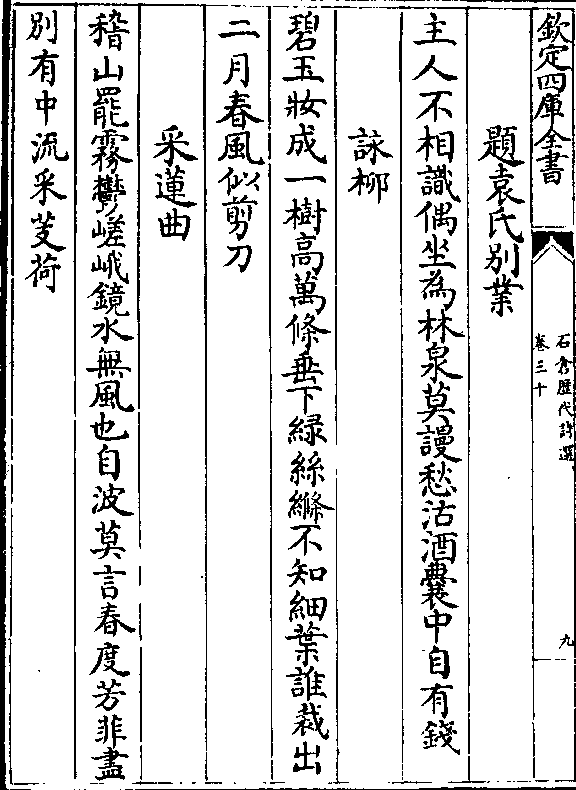 欽定四庫全書
石倉歷代詩選
卷三十
九
題袁氏別業
主人不相識偶坐為林泉莫謾愁沽酒囊中自有錢
詠柳
碧玉妝成一樹高萬條垂下緑絲縧不知細葉誰裁出
二月春風似剪刀
采蓮曲
稽山罷霧鬱嵯峨鏡水無風也自波莫言春度芳菲盡
別有中流采芰荷